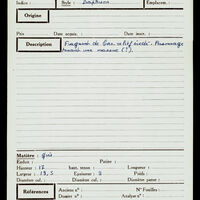 Indice : Style : Emplacem. :
Origine
Prix Date acquis. : Date inscr. :
Description Fragment de bas-relief : Personnage
tenant une massue (?).
Matière : grès
Enduit : Patine :
Hauteur : 17 haut. tenon : Longueur :
Largeur : 13,5 Epaisseur : 3 Poids :
Diamètre sup. : Diamètre inf. : Diamètre panse :
Références Ancien n° : N° Fouilles :
Dossier n° : Analyse n° :